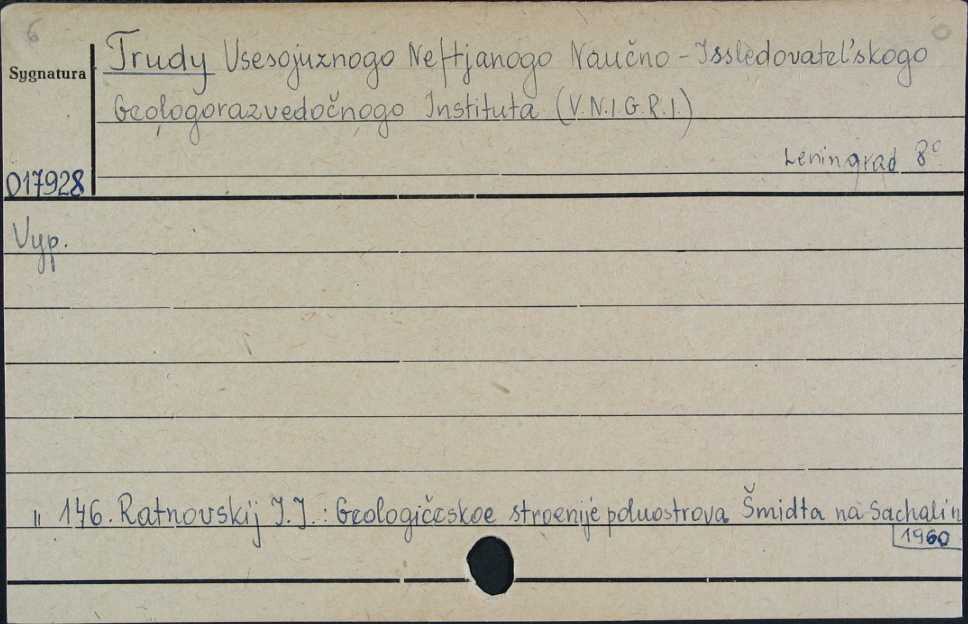 6
Trudy Vsesojuznogo Neftjanogo Naučno-Issledovatel'skogo
Sygnatura
Geologorazvedočnogo Instituta (V.N.I.G.R.I.)
Leningrad 8°
017928
Vyp.
" 146. Ratnovskij I.I.: Geologičeskoe stroenije poluostrova Šmidta na Sachalin
1960